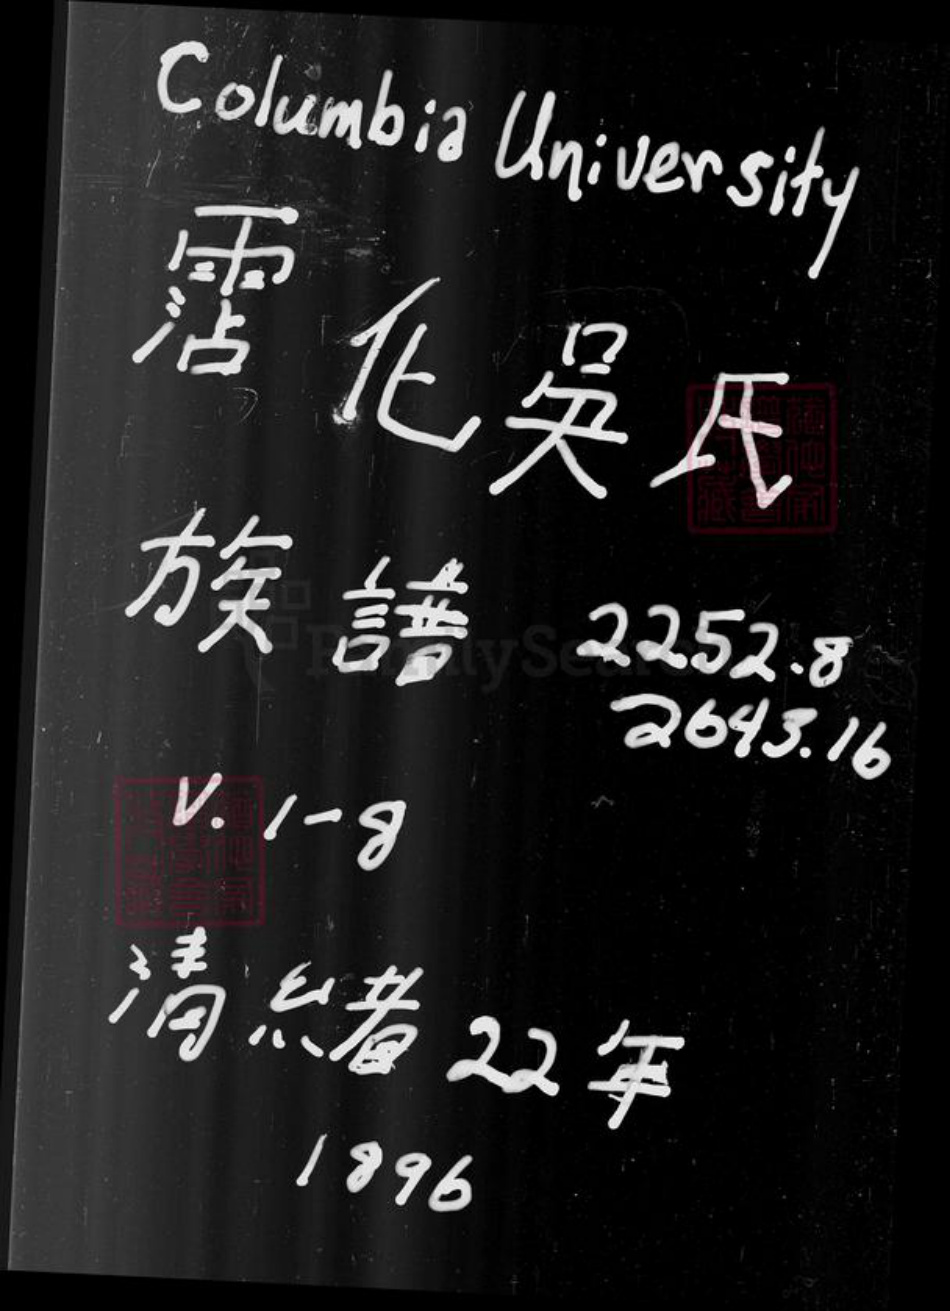 Columbia University
霑化吳氏
族譜 2252.8
2643.16
V. 1-8
清緒 22年
1896
FamilySearch